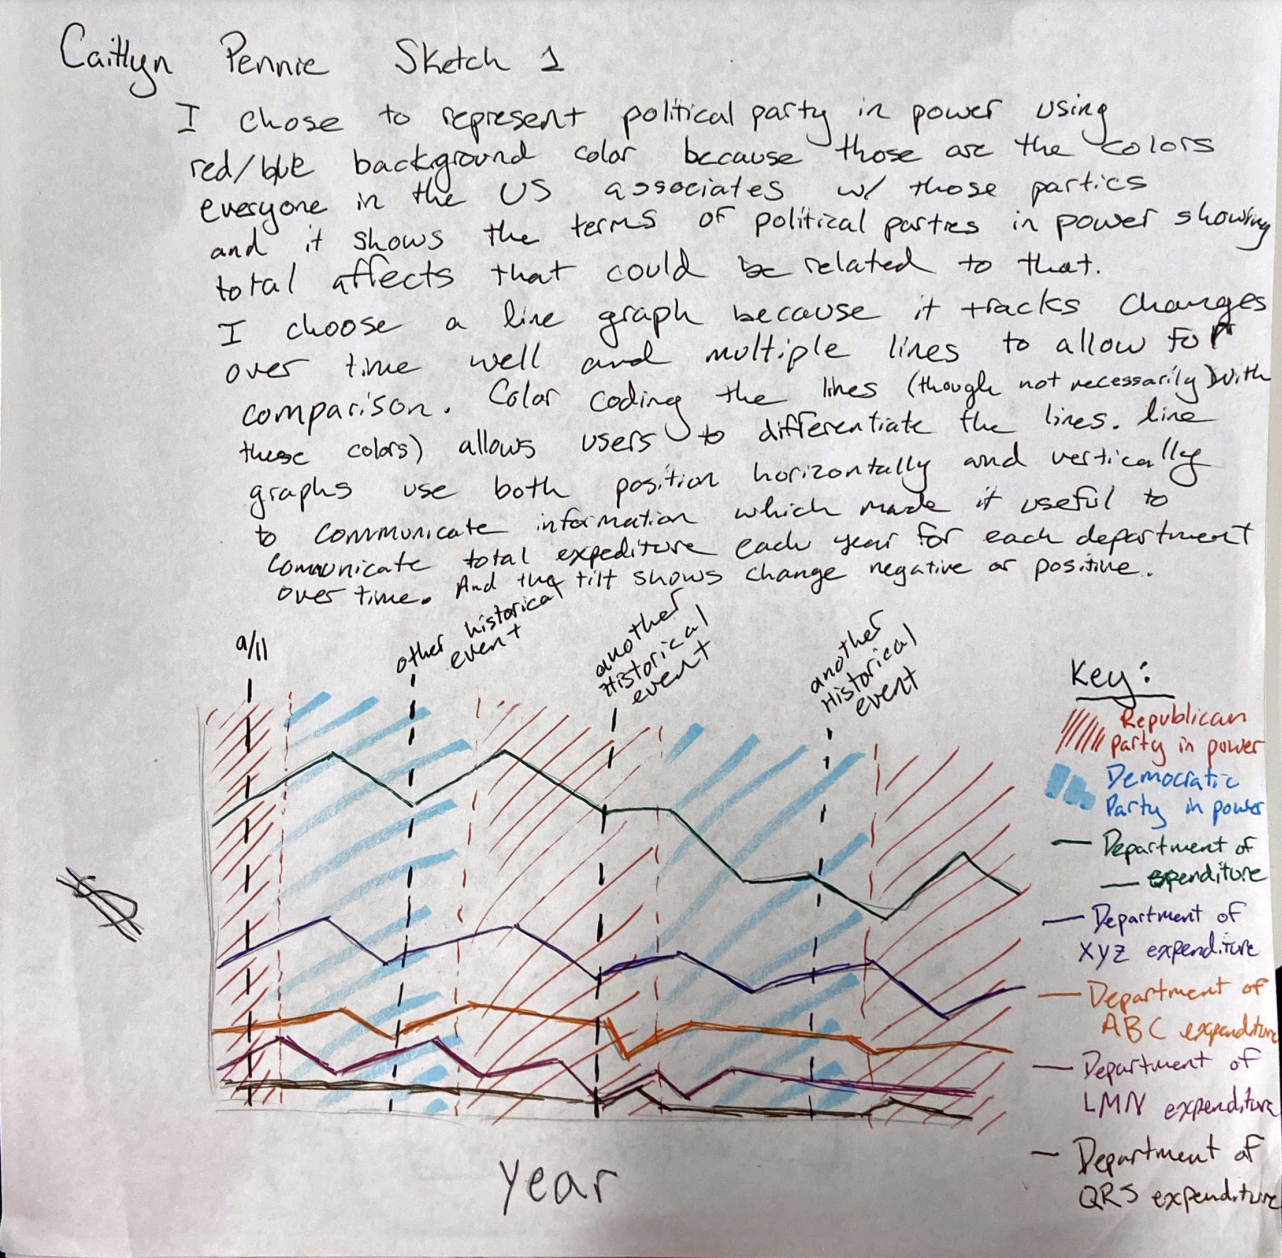 Caitlyn Pennie Sketch 1
I chose to represent political party in power using
red/blue background color because those are the colors
everyone in the US associates w/ those parties
and it shows the terms of political parties in power showing
total affects that could be related to that.
I choose a line graph because it tracks changes
over time well and multiple lines to allow for
comparison. Color coding the lines (though not necessarily with
these colors) allows users to differentiate the lines. line
graphs use both position horizontally and vertically
to communicate information which made it useful to
communicate total expediture each year for each department
over time. And the tilt shows change negative or positive.
9/11
other historical
event
another
Historical
event
another
Historical
event
Key:
Republican
party in power
Democratic
Party in power
Department of
— expenditure
Department of
XYZ expenditure
Department of
ABC expenditure
Department of
LMN expenditure
Department of
QRS expenditure
$
year